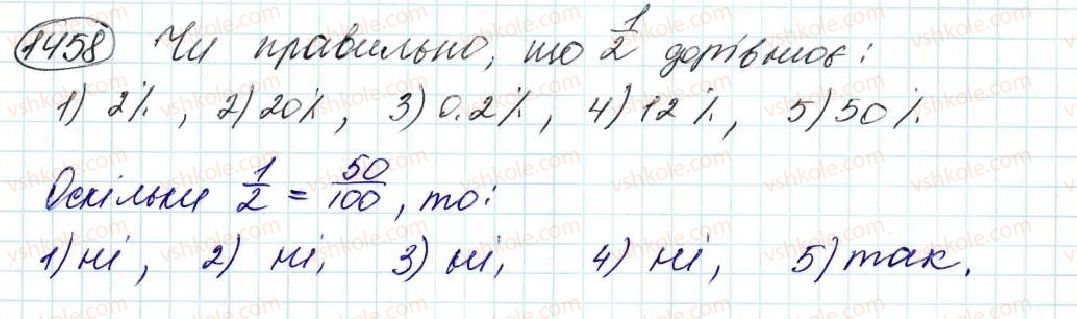 1458 Чи правильно, що 1/2 дорівнює:
1) 2%, 2) 20%, 3) 0.2%, 4) 12%, 5) 50%
Оскільки 1/2 = 50/100, то:
1) ні, 2) ні, 3) ні, 4) ні, 5) так.